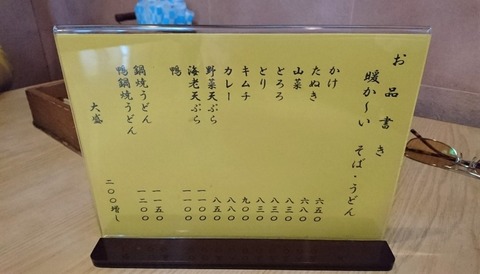 お品書き
暖か〜い そば・うどん
かけ 六五〇
たぬき 六八〇
山菜 八三〇
とろろ 八三〇
とり 八三〇
キムチ 九〇〇
カレー 八八〇
野菜天ぷら 八五〇
海老天ぷら 一一〇〇
鴨 一一〇〇
鍋焼うどん 一一五〇
鴨鍋焼うどん 一二〇〇
大盛 二〇〇増し